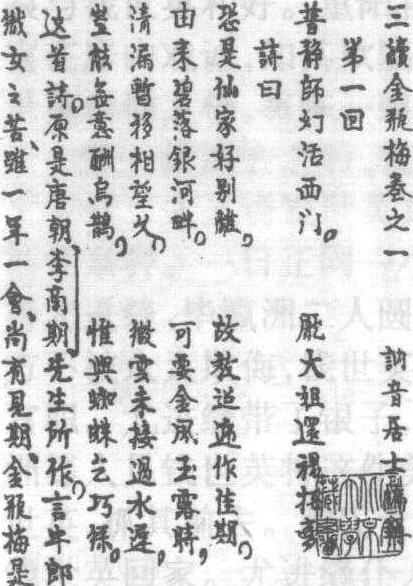 三續金瓶梅卷之一 訥音居士編輯
第一回
普静師幻活西门。 龐大姐還魂招
詩曰
恐是仙家好别離。 故教迢遞作佳期。
由来碧落銀河畔。 可要金風玉露時。
清漏暫移相望久。 微雲未接過水遲。
豈能無意酬烏鵲。 惟與蜘蛛乞巧絲。
这首詩。原是唐朝、李商期、先生所作。言牛郎
織女之苦、雖一年一會、尚有見期、金瓶梅是